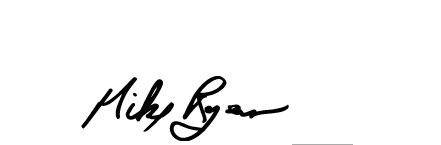 Mike Ryan